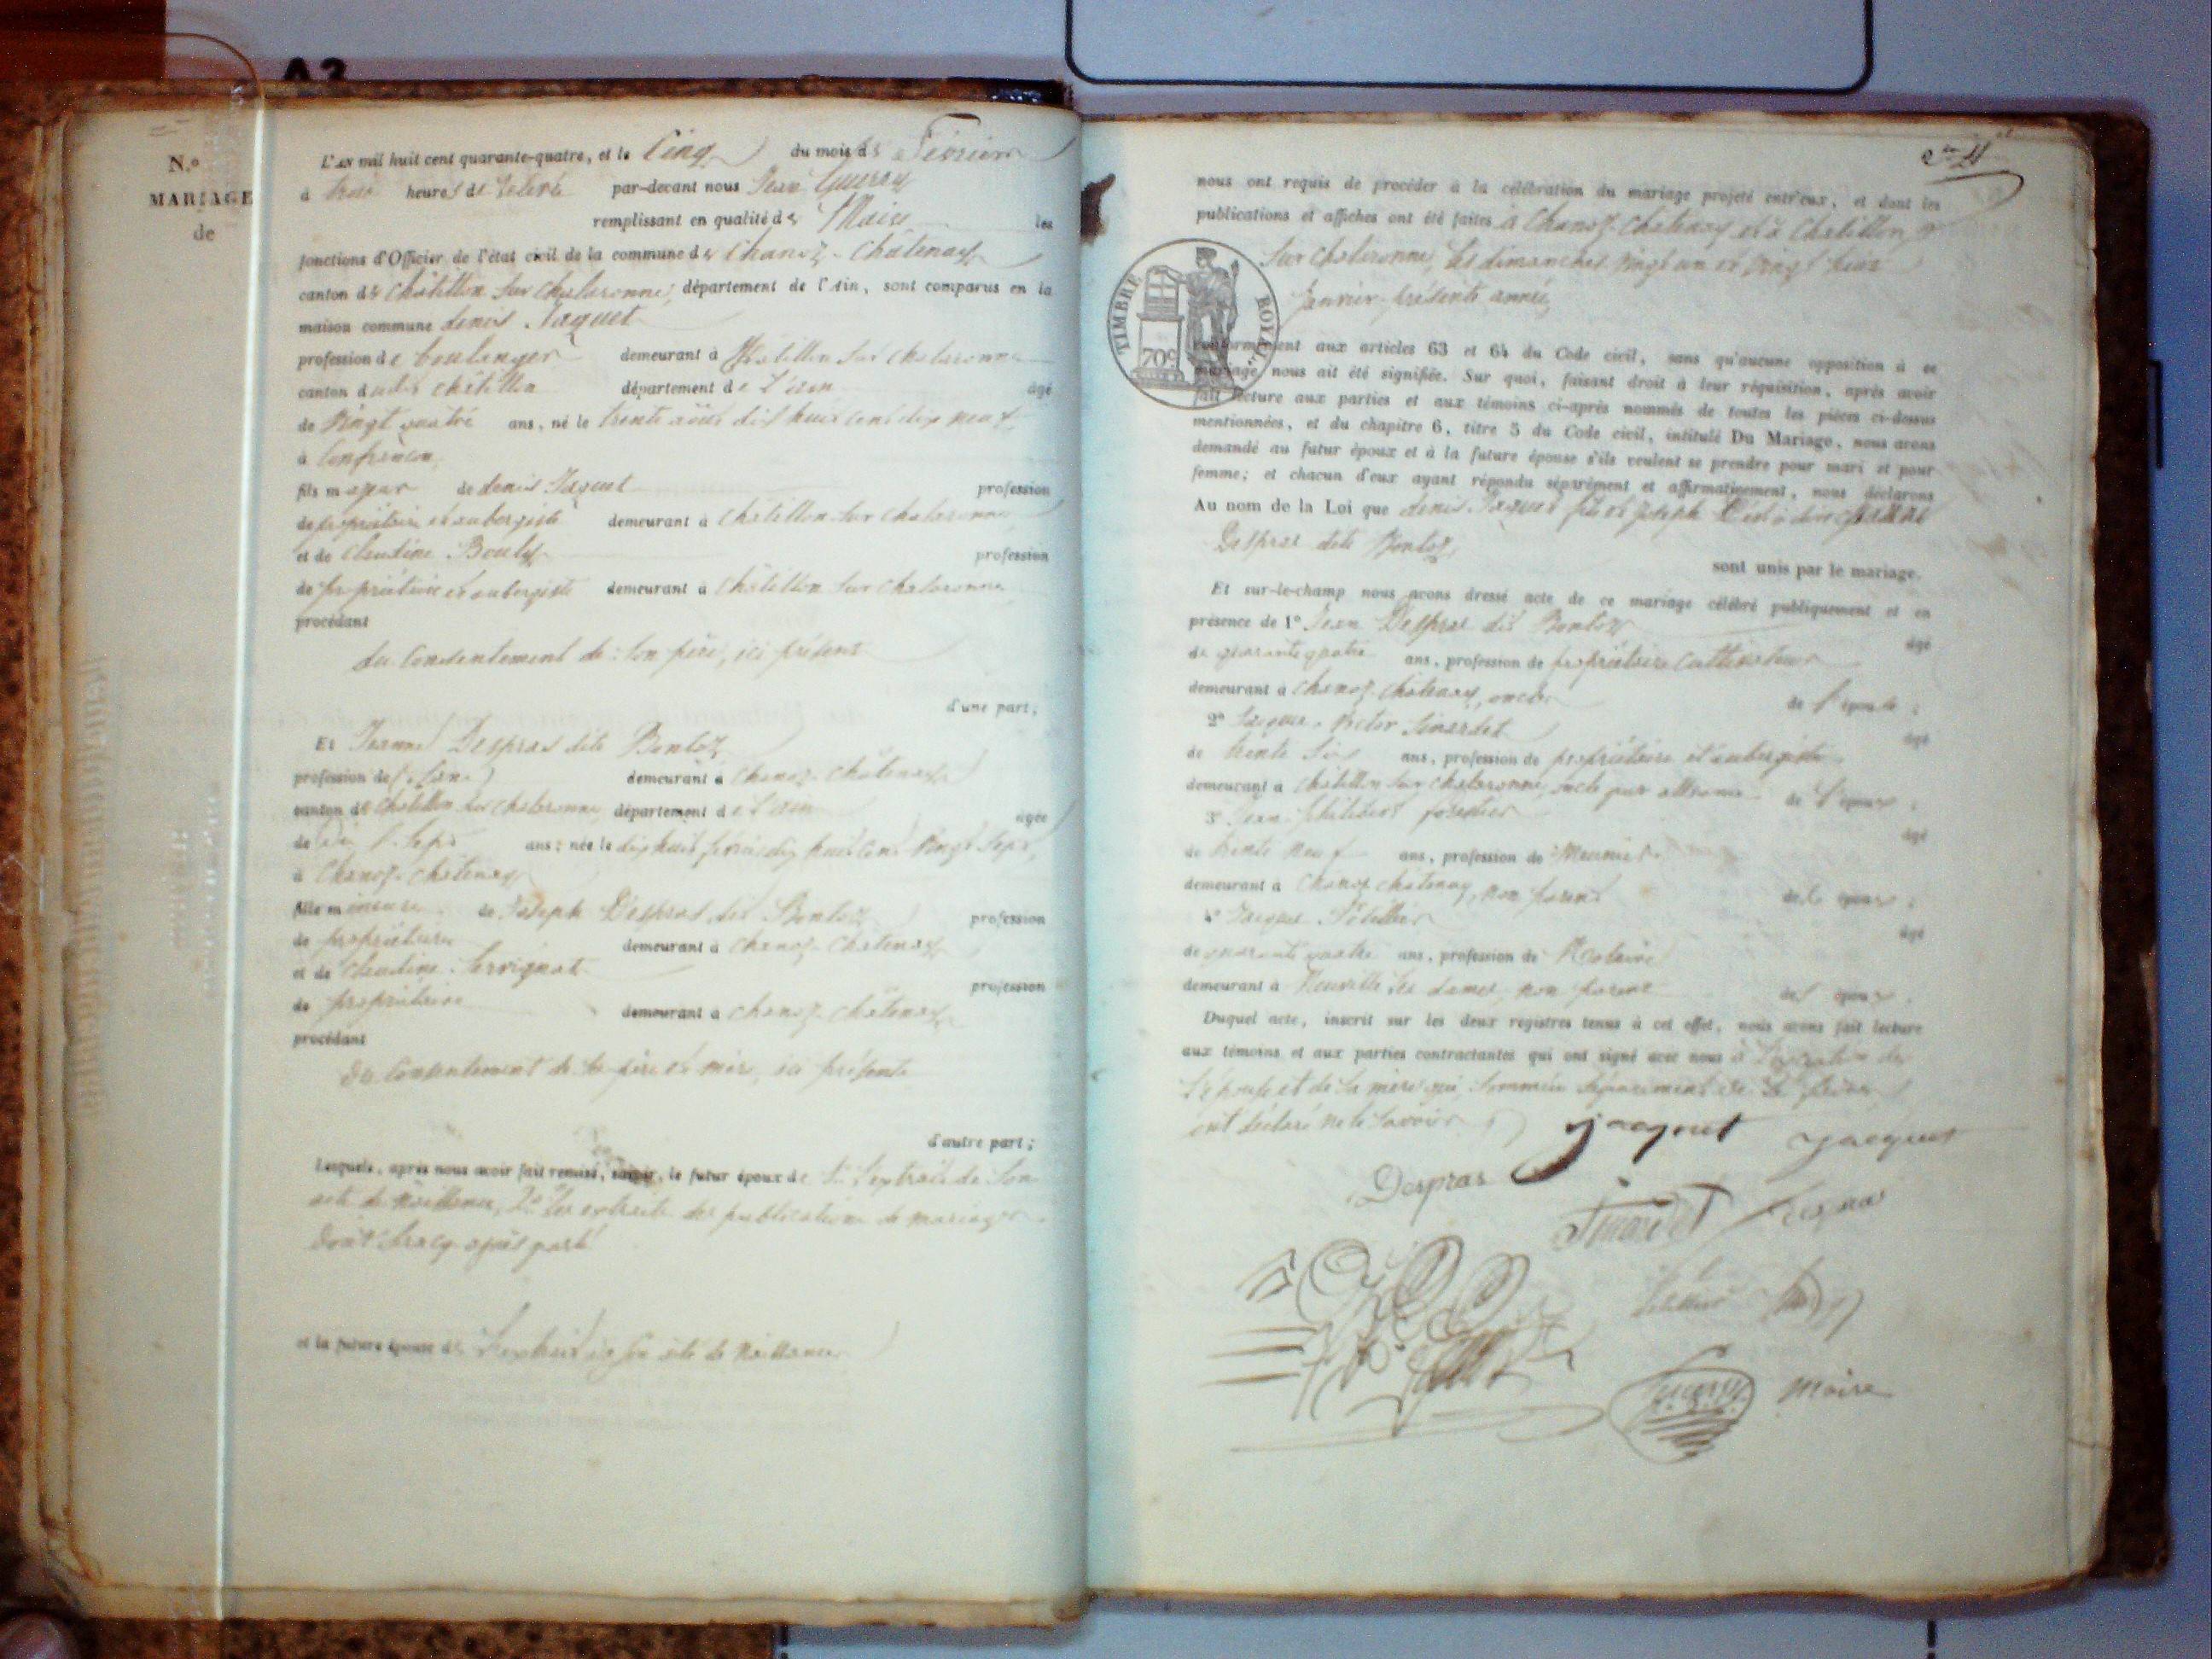 A3
N.o
MARIAGE
de
L'AN mil huit cent quarante-quatre, et le Cinq du mois de Février
à trois heures de relevé par-devant nous Jean Guerry
remplissant en qualité de Maire les
fonctions d'Officier de l'état civil de la commune de Chanoz-Châtenay
canton de Châtillon sur Chalaronne, département de l'Ain, sont comparus en la
maison commune denis Jaquet
profession de boulanger demeurant à Châtillon sur Chalaronne
canton dudit châtillon département de l'ain âgé
de Vingt quatre ans, né le trente août dix huit cent dix neuf
à Confrançon
fils majeur de denis Jaquet profession
de propriétaire et aubergiste demeurant à Châtillon sur Chalaronne
et de Claudine Bouly profession
de propriétaire et aubergiste demeurant à Châtillon sur Chalaronne
procédant
du Consentement de son père, ici présent
d'une part;
Et Jeanne Despras dite Bontoz
profession de demeurant à Chanoz-Châtenay
canton de Châtillon sur Chalaronne département de l'ain âgée
de Dix Sept ans; née le dix huit février dix huit cent Vingt Sept
à Chanoz-Châtenay
fille mineure de Joseph Despras dit Bontoz profession
de propriétaire demeurant à Chanoz-Châtenay
et de Claudine Servignat profession
de propriétaire demeurant à Chanoz-Châtenay
procédant
du Consentement de ses père et mère, ici présents
d'autre part;
Lesquels, après nous avoir fait remise, savoir, le futur époux de 1o l'extrait de son
acte de Naissance, 2o les extraits des publications de mariage
dont sera ci après parlé
et la future épouse de l'extrait de son acte de Naissance
nous ont requis de procéder à la célébration du mariage projeté entr'eux, et dont les
publications et affiches ont été faites à Chanoz-Châtenay et à Châtillon
sur Chalaronne, les dimanches vingt un et vingt huit
Janvier présente année,
TIMBRE ROYAL
70c
conformément aux articles 63 et 64 du Code civil, sans qu'aucune opposition à ce
mariage nous ait été signifiée. Sur quoi, faisant droit à leur réquisition, après avoir
fait lecture aux parties et aux témoins ci-après nommés de toutes les pièces ci-dessus
mentionnées, et du chapitre 6, titre 5 du Code civil, intitulé Du Mariage, nous avons
demandé au futur époux et à la future épouse s'ils veulent se prendre pour mari et pour
femme; et chacun d'eux ayant répondu séparément et affirmativement, nous déclarons
Au nom de la Loi que denis Jaquet
Despras dite Bontoz
sont unis par le mariage.
Et sur-le-champ nous avons dressé acte de ce mariage célébré publiquement et en
présence de 1o Jean Despras dit Bontoz âgé
de quarante quatre ans, profession de propriétaire Cultivateur
demeurant à Chanoz-Châtenay, oncle de l'épouse;
2o Jacques Victor Sinardet âgé
de trente six ans, profession de propriétaire et aubergiste
demeurant à Châtillon sur Chalaronne, oncle par alliance de l'époux;
3o Jean Philibert forestier âgé
de trente neuf ans, profession de Meunier
demeurant à Chanoz Châtenay, non parent des époux;
4o Jacques âgé
de quarante quatre ans, profession de Notaire
demeurant à Neuville les dames, non parent des époux.
Duquel acte, inscrit sur les deux registres tenus à cet effet, nous avons fait lecture
aux témoins et aux parties contractantes qui ont signé avec nous à l'exception de
l'épouse et de sa mère qui, sommées séparément de le faire,
ont déclaré ne le savoir
jacquet jacquet
Despras
Sinardet Despras
Guerry maire